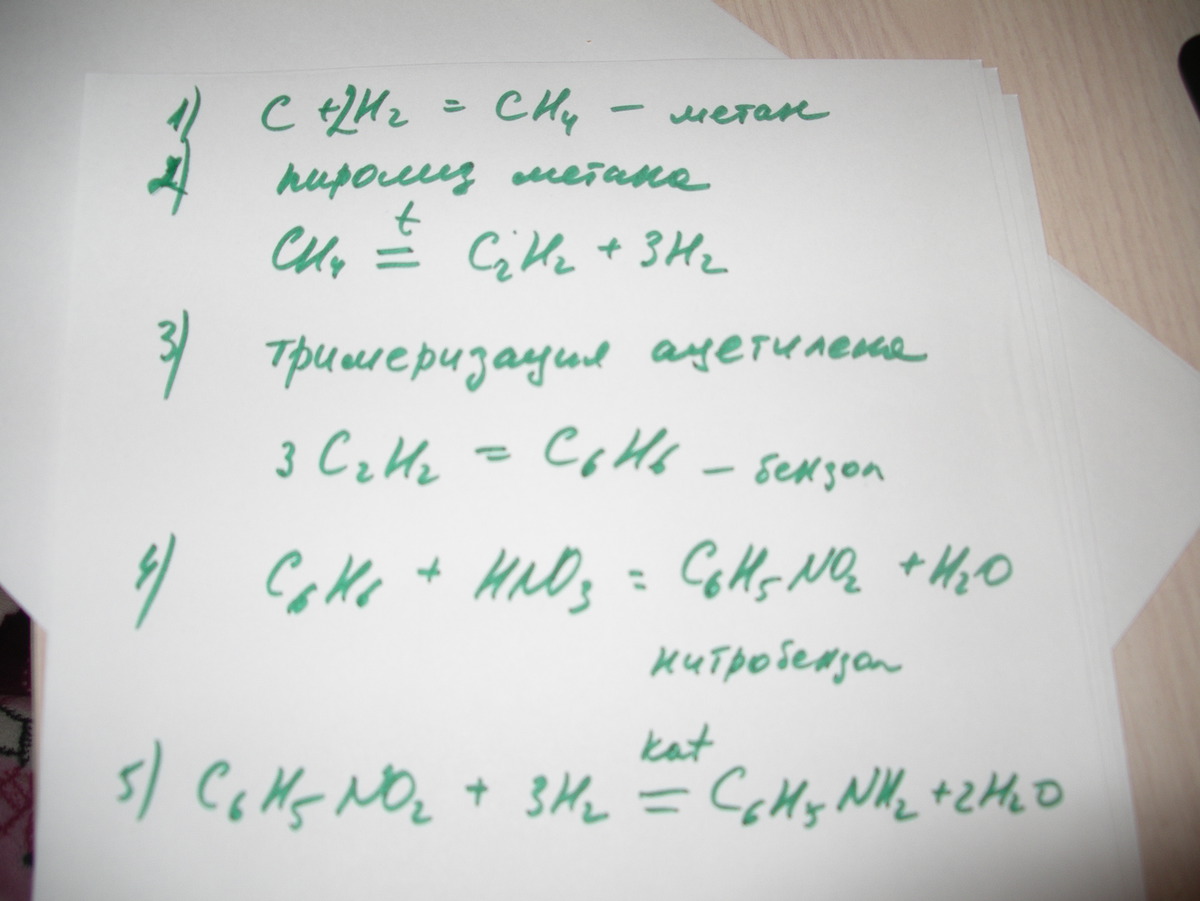 1) C + 2H₂ = CH₄ – метан
2) пиролиз метана
CH₄ =ᵗ C₂H₂ + 3H₂
3) тримеризация ацетилена
3 C₂H₂ = C₆H₆ – бензол
4) C₆H₆ + HNO₃ = C₆H₅NO₂ + H₂O
нитробензол
5) C₆H₅NO₂ + 3H₂ =kat C₆H₅NH₂ + 2H₂O